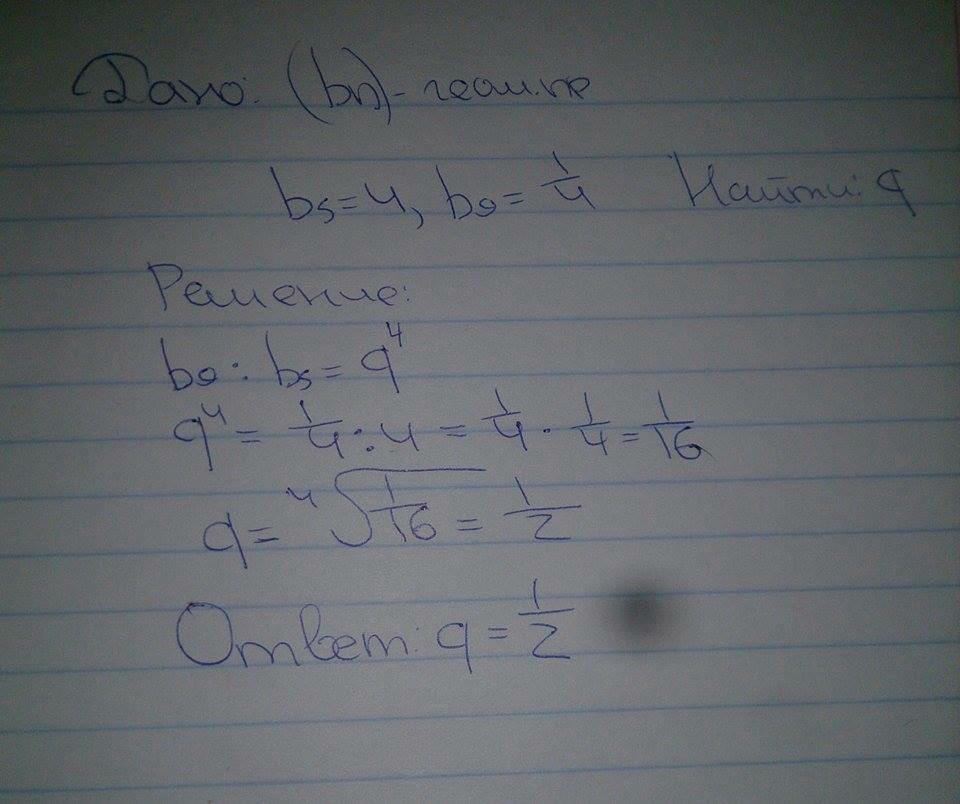 Дано: (bn) - геом.пр
b₅=4, b₉=1/4 Найти: q
Решение:
b₉ : b₅ = q⁴
q⁴ = 1/4 : 4 = 1/4 · 1/4 = 1/16
q = ⁴√1/16 = 1/2
Ответ: q = 1/2